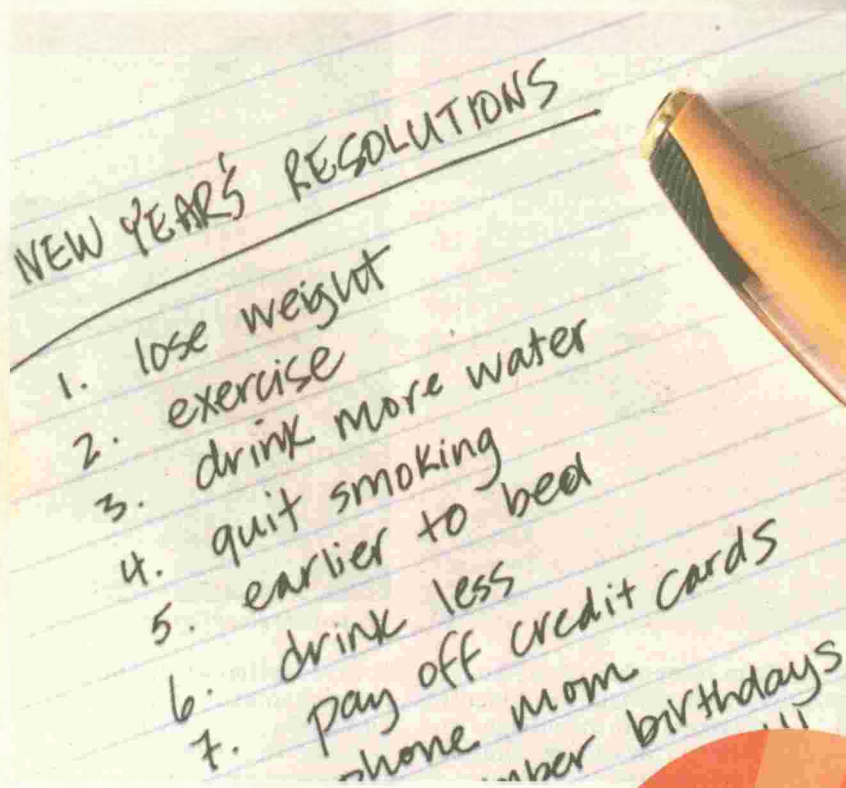 NEW YEAR'S RESOLUTIONS
1. lose weight
2. exercise
3. drink more water
4. quit smoking
5. earlier to bed
6. drink less
7. pay off credit cards
phone mom
mber birthdays